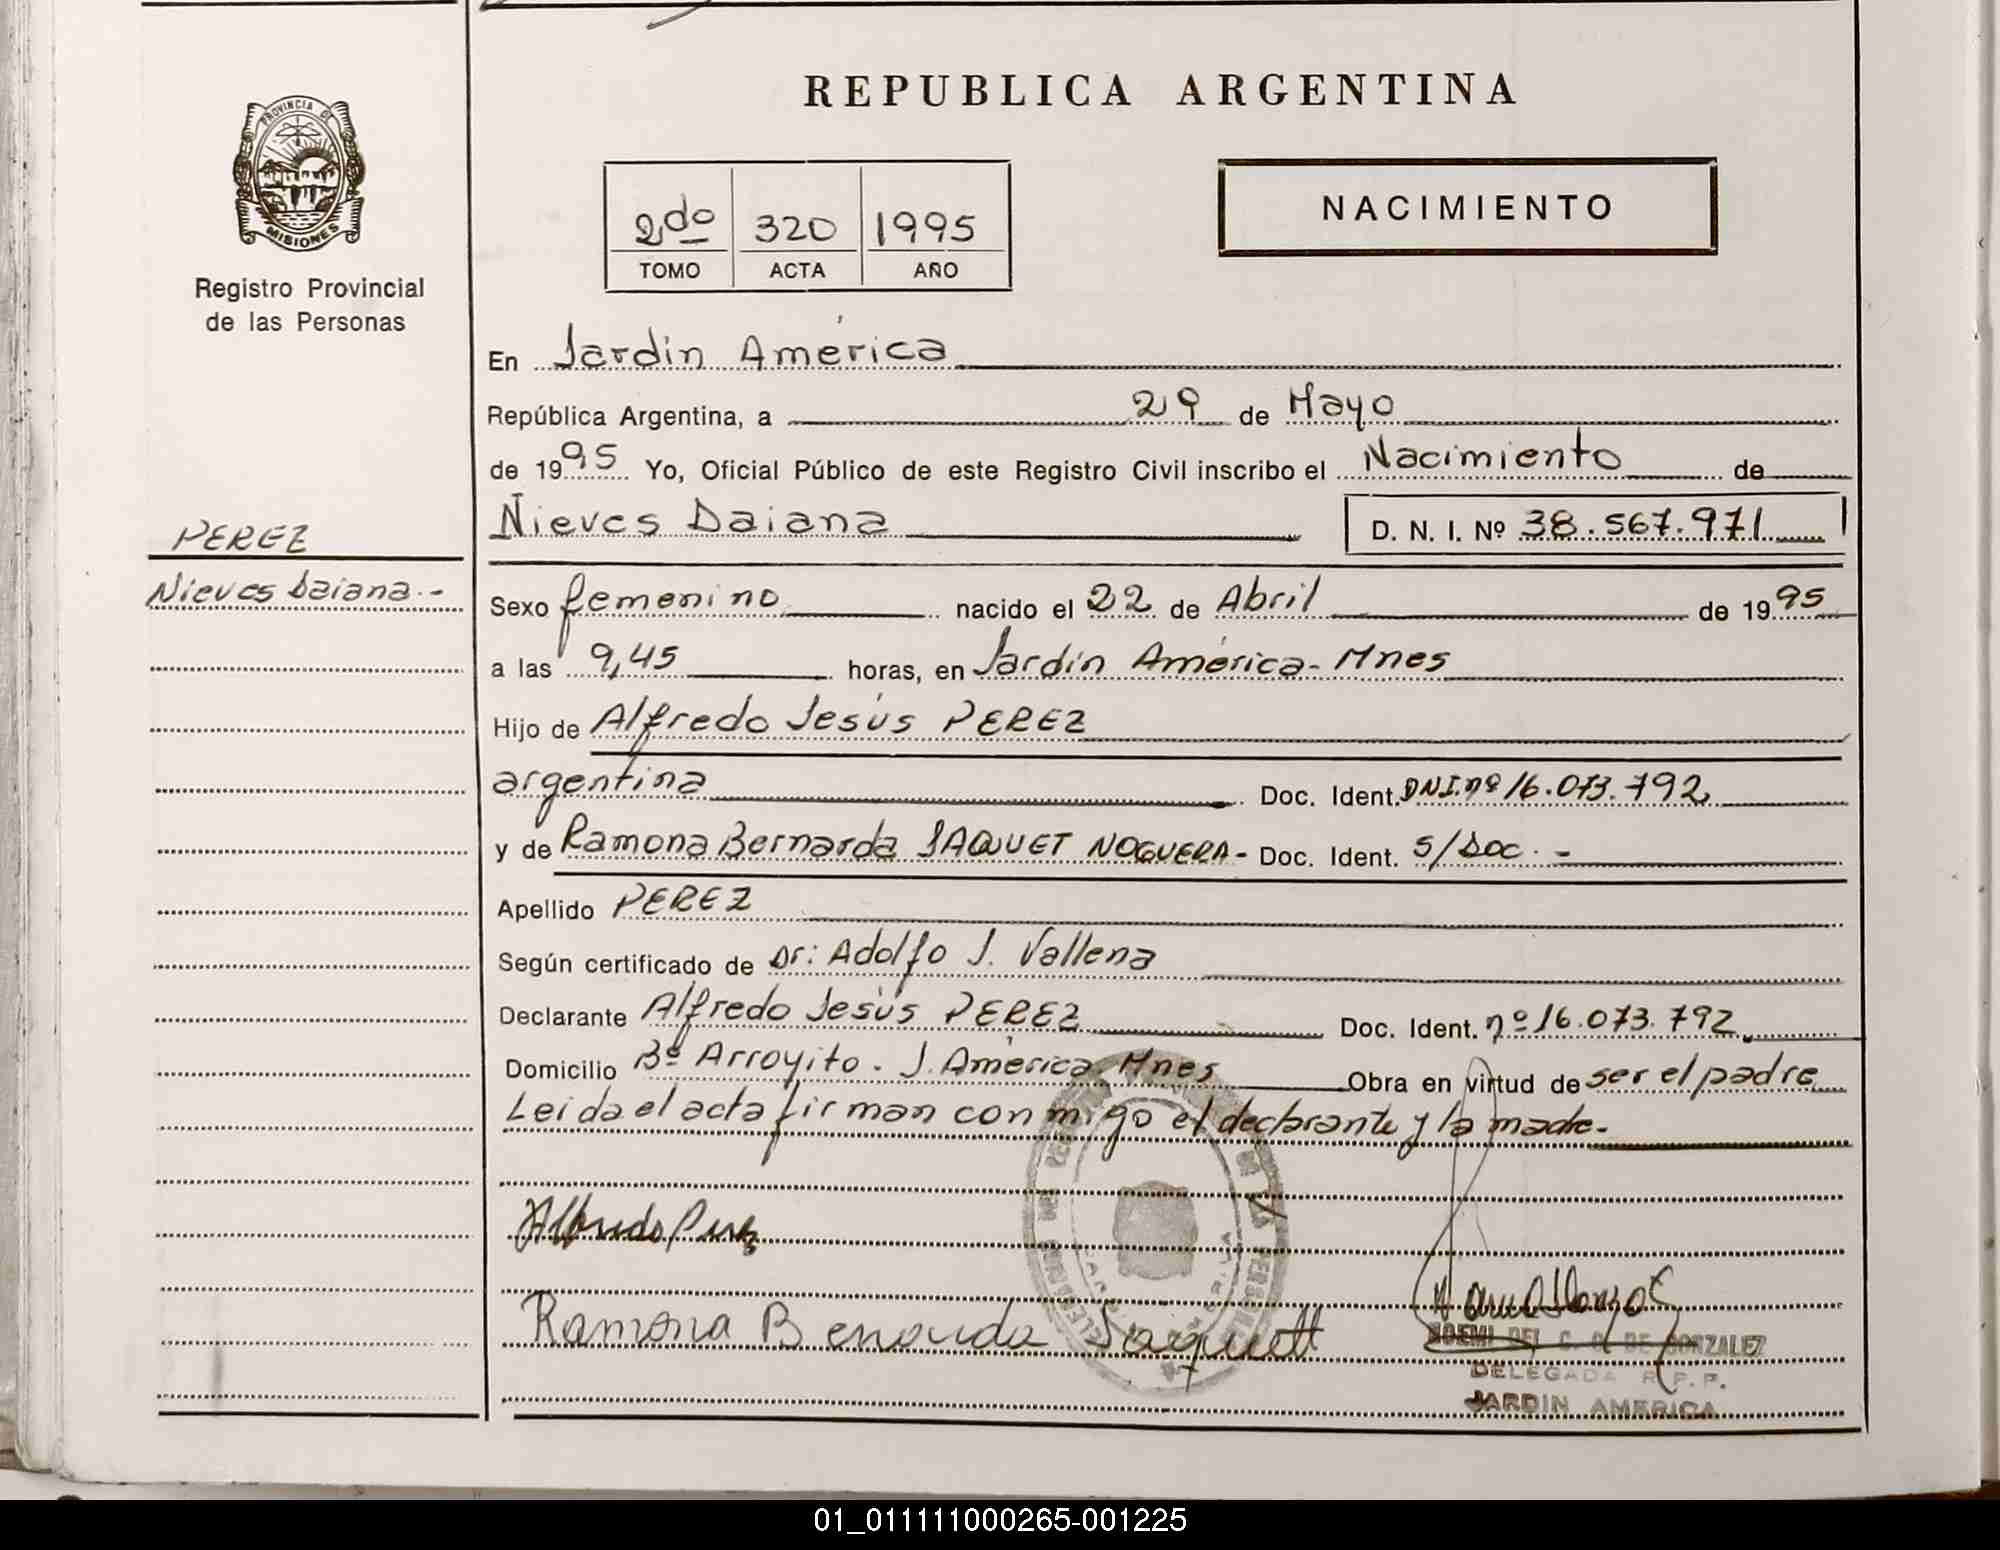 REPUBLICA ARGENTINA
PROVINCIA DE
MISIONES
Registro Provincial
de las Personas
2do 320 1995
TOMO ACTA AÑO
NACIMIENTO
En Jardín América
República Argentina, a 29 de Mayo
de 1995 Yo, Oficial Público de este Registro Civil inscribo el Nacimiento de
Nieves Daiana D. N. I. Nº 38.567.971
PEREZ
Nieves Daiana.-
Sexo femenino nacido el 22 de Abril de 1995
a las 9,45 horas, en Jardín América- Mnes
Hijo de Alfredo Jesús PEREZ
argentina Doc. Ident. DNI.nº 16.073.792
y de Ramona Bernarda JAQUET NOGUERA- Doc. Ident. S/Doc.-
Apellido PEREZ
Según certificado de Dr: Adolfo J. Vallena
Declarante Alfredo Jesús PEREZ Doc. Ident. nº 16.073.792
Domicilio Bº Arroyito. J. América. Mnes Obra en virtud de ser el padre
Leida el acta firman conmigo el declarante y la madre-
Alfredo Perez
Ramona Benarda Jaquett
NOEMI DEL C. O. DE GONZALEZ
DELEGADA R.P.P.
JARDIN AMERICA
01_011111000265-001225